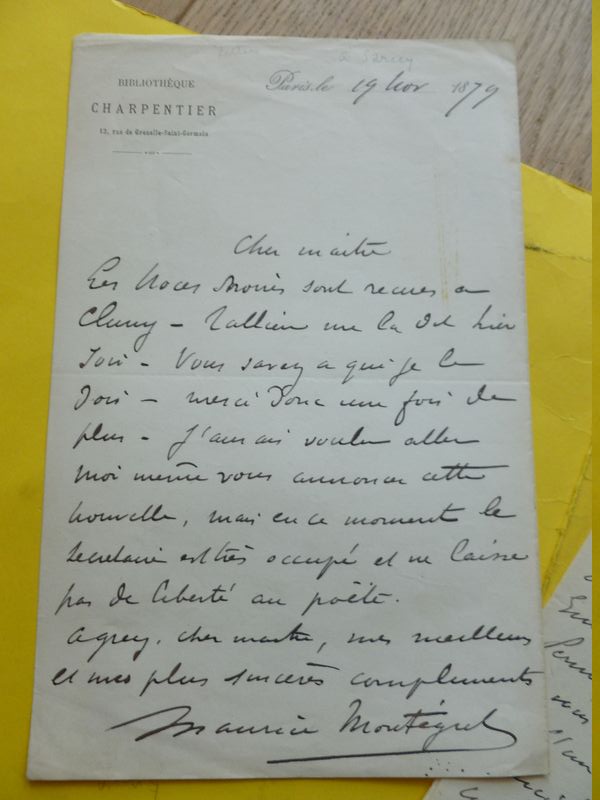 à Sarcey
BIBLIOTHÈQUE
CHARPENTIER
13, rue de Grenelle-Saint-Germain
Paris, le 19 Nov 1879
Cher maitre
Les Noces d'
sont recues a
Cluny – Tallien me l'a dit hier
Soir – Vous savez a qui je le
Dois – merci Donc une fois de
plus – J'aurais voulu aller
moi meme vous annoncer cette
nouvelle, mais en ce moment le
Secretaire est très occupé et ne laisse
pas de liberté au poëte.
Agreez, cher maitre, mes meilleurs
et mes plus sincères compliments
Maurice Montégut